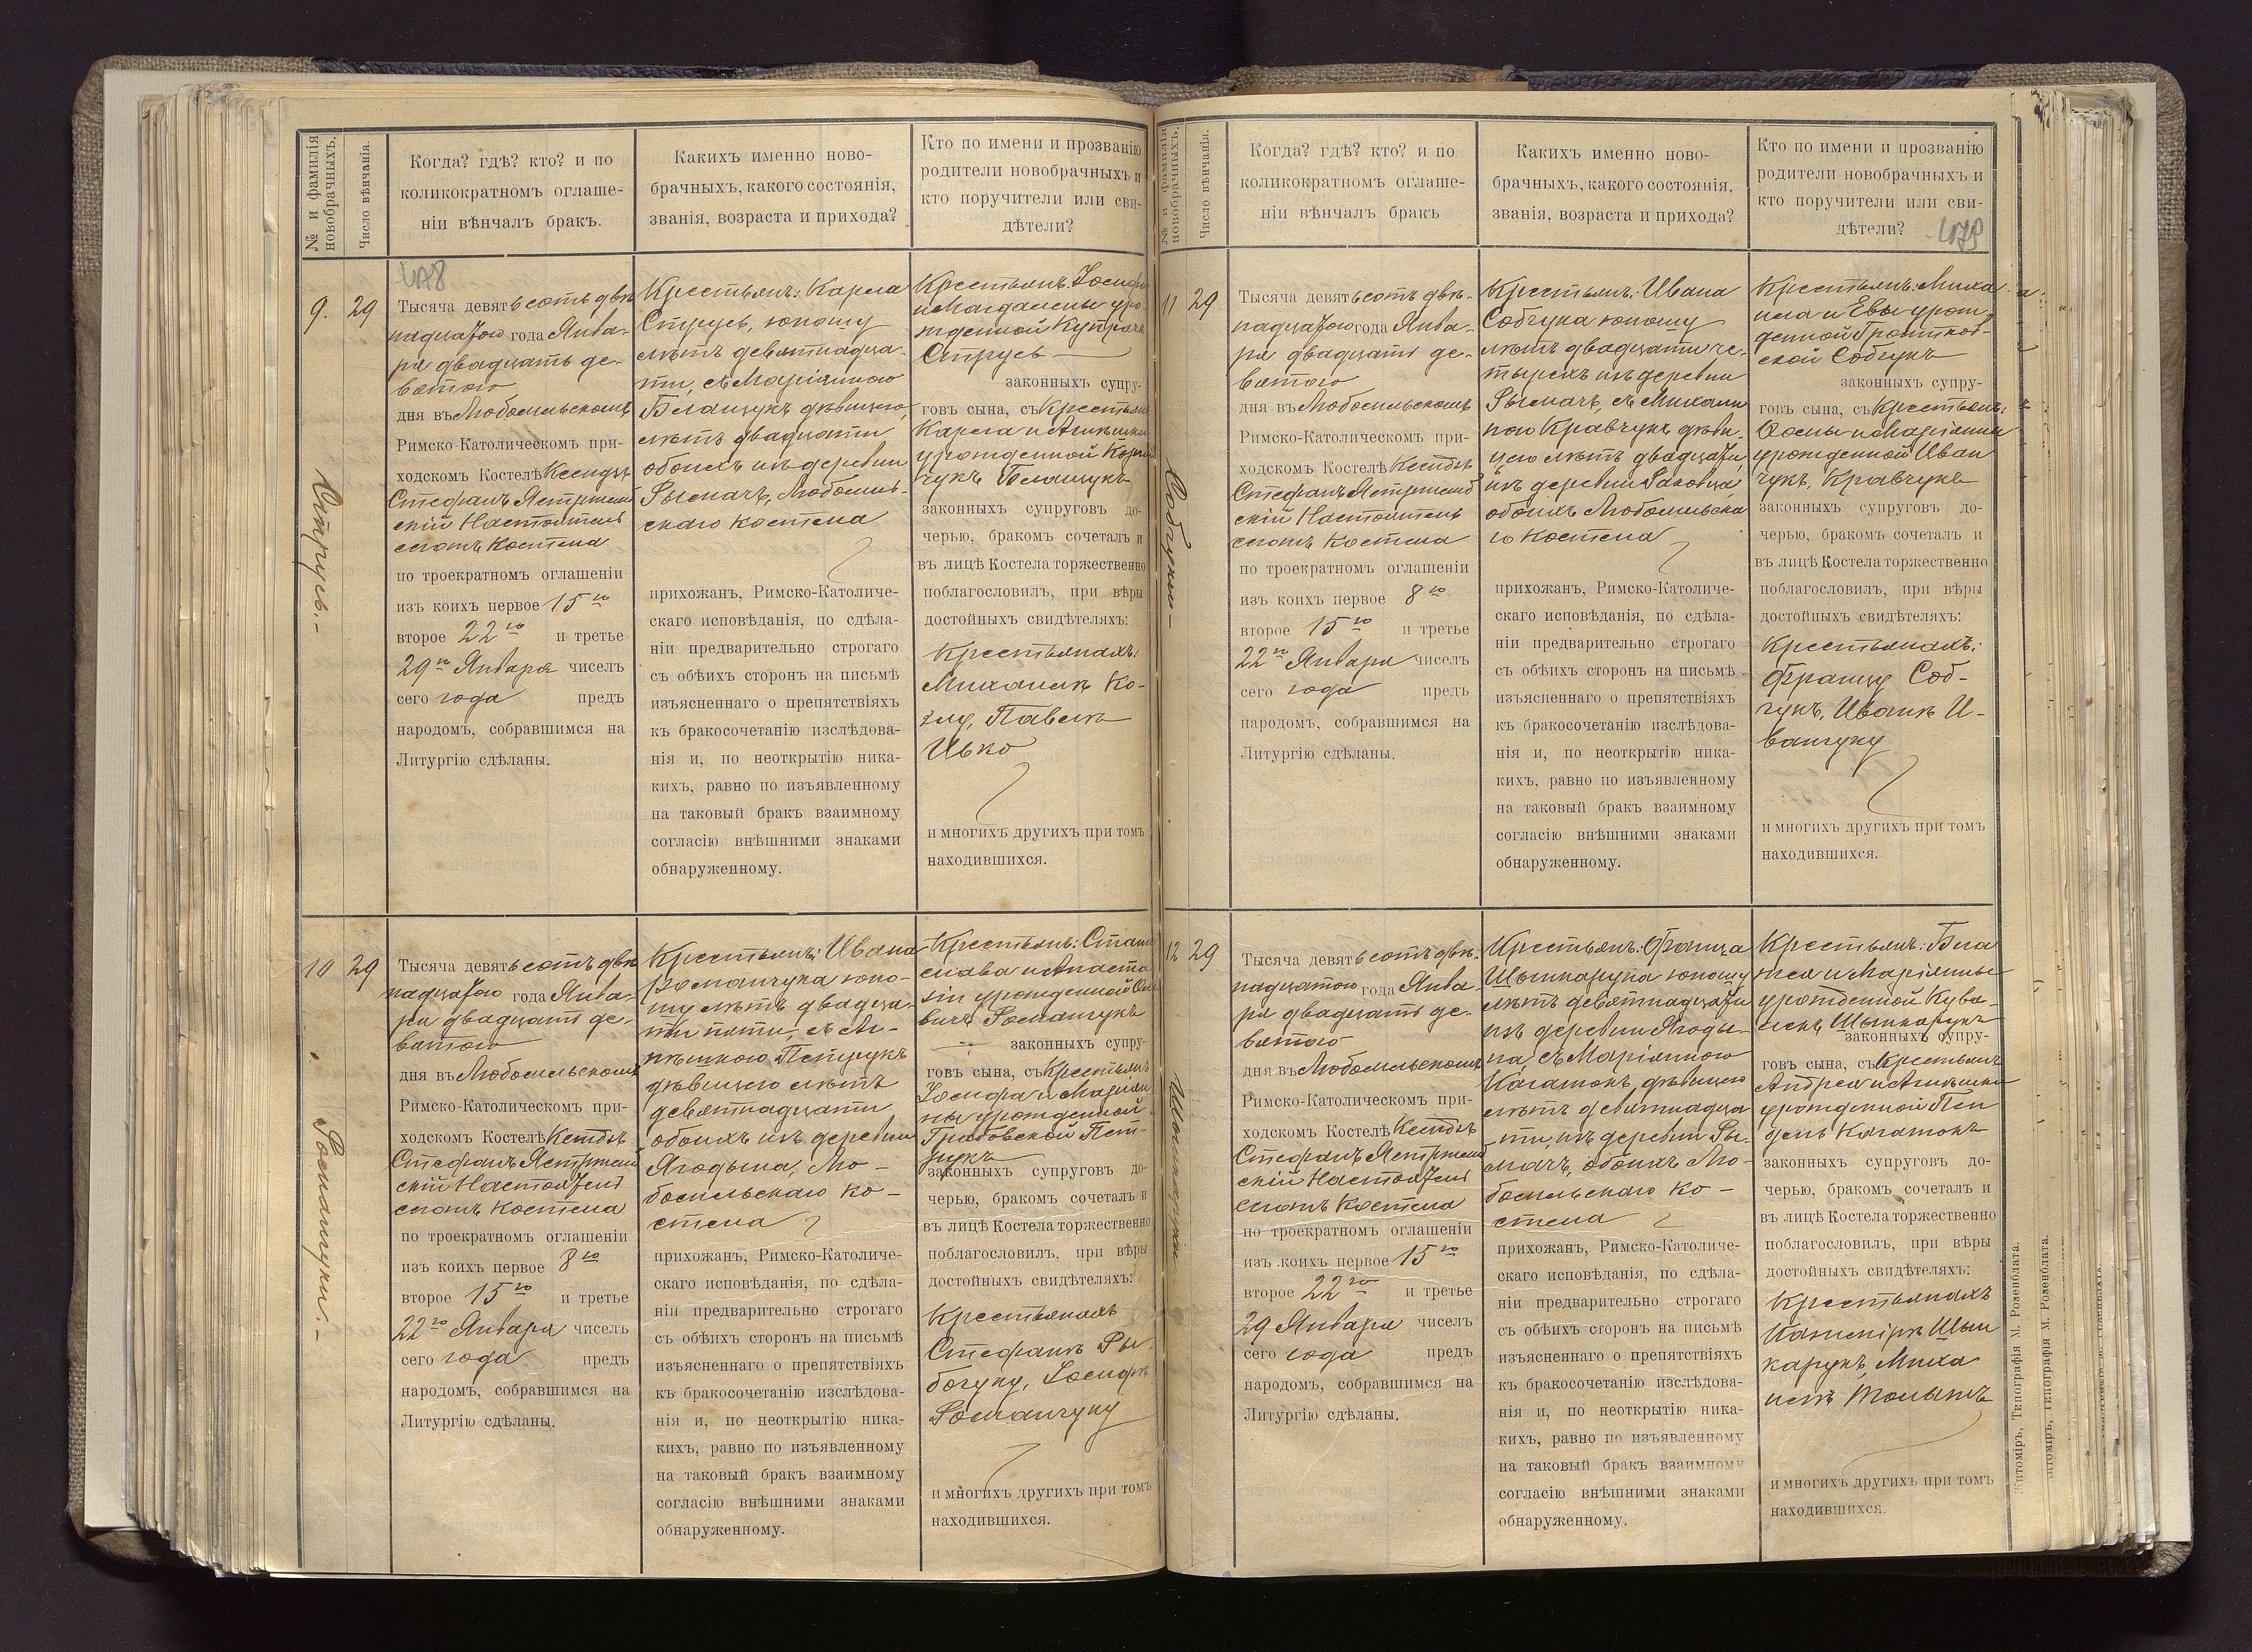 № и фамилія новобрачныхъ.
Число вѣнчанія.
Когда? гдѣ? кто? и по
коликократномъ оглаше-
ніи вѣнчалъ бракъ.
Какихъ именно ново-
брачныхъ, какого состоянія,
званія, возраста и прихода?
Кто по имени и прозванію
родители новобрачныхъ и
кто поручители или сви-
дѣтели?
478
9. 29
Струсь.-
Тысяча девятьсотъ двѣ-
надцатого года Янва-
ря двадцать де-
вятого
дня въ Любомльскомъ
Римско-Католическомъ при-
ходскомъ Костелѣ Ксендзъ
Стефанъ Ястржемб
скій Настоятель
сего Костела
по троекратномъ оглашеніи
изъ коихъ первое 15го
второе 22го и третье
29го Января чиселъ
сего года предъ
народомъ, собравшимся на
Литургію сдѣланы.
Крестьянъ: Карла
Струсь, юношу
лѣтъ девятнадца-
ти, съ Маріанною
Белащукъ дѣвицею,
лѣтъ двадцати
обоихъ изъ деревни
Рымачъ, Любомль-
скаго костела
прихожанъ, Римско-Католиче-
скаго исповѣданія, по сдѣла-
ніи предварительно строгаго
съ обѣихъ сторонъ на письмѣ
изъясненнаго о препятствіяхъ
къ бракосочетанію изслѣдова-
нія и, по неоткрытію ника-
кихъ, равно по изъявленному
на таковый бракъ взаимному
согласію внѣшними знаками
обнаруженному.
Крестьянъ: Іосифа
и Магдалены уро-
жденной
Струсь
законныхъ супру-
говъ сына, съ Крестьянъ
Карла и Агнѣшки
урожденной
Белащукъ
законныхъ супруговъ до-
черью, бракомъ сочеталъ и
въ лицѣ Костела торжественно
поблагословилъ, при вѣры
достойныхъ свидѣтеляхъ:
Крестьянахъ:
Михаилѣ Ко-
злу, Павелъ
Цько
и многихъ другихъ при томъ
находившихся.
10 29
Романчуки.-
Тысяча девятьсотъ двѣ
надцатого года Янва-
ря двадцать де-
вятого
дня въ Любомльскомъ
Римско-Католическомъ при-
ходскомъ Костелѣ Ксендзъ
Стефанъ Ястржемб
скій Настоятель
сего Костела
по троекратномъ оглашеніи
изъ коихъ первое 8го
второе 15го и третье
22го Января чиселъ
сего года предъ
народомъ, собравшимся на
Литургію сдѣланы.
Крестьянъ: Ивана
Романчука юно-
шу лѣтъ двадца-
ти пяти, съ Аг-
нѣшкою Петрукъ
дѣвицею лѣтъ
девятнадцати
обоихъ изъ деревни
Ягодына, Лю-
бомльскаго ко-
стела
прихожанъ, Римско-Католиче-
скаго исповѣданія, по сдѣла-
ніи предварительно строгаго
съ обѣихъ сторонъ на письмѣ
изъясненнаго о препятствіяхъ
къ бракосочетанію изслѣдова-
нія и, по неоткрытію ника-
кихъ, равно по изъявленному
на таковый бракъ взаимному
согласію внѣшними знаками
обнаруженному.
Крестьянъ: Стани
слава и Анаста
зіи урожденной
Романчукъ
законныхъ супру-
говъ сына, съ Крестьянъ
Іосифа и Маріан
ны урожденной
Грабовской Пет-
рукъ
законныхъ супруговъ до-
черью, бракомъ сочеталъ и
въ лицѣ Костела торжественно
поблагословилъ, при вѣры
достойныхъ свидѣтеляхъ:
Крестьянахъ
Стефанъ Ры-
бачуку, Іосифъ
Романчуку
и многихъ другихъ при томъ
находившихся.
№ и фамилія новобрачныхъ.
Число вѣнчанія.
Когда? гдѣ? кто? и по
коликократномъ оглаше-
ніи вѣнчалъ бракъ
Какихъ именно ново-
брачныхъ, какого состоянія,
званія, возраста и прихода?
Кто по имени и прозванію
родители новобрачныхъ и
кто поручители или сви-
дѣтели?
479
11 29
Тысяча девятьсотъ двѣ-
надцатого года Янва-
ря двадцать де-
вятого
дня въ Любомльскомъ
Римско-Католическомъ при-
ходскомъ Костелѣ Ксендзъ
Стефанъ Ястржемб
скій Настоятель
сего Костела
по троекратномъ оглашеніи
изъ коихъ первое 8го
второе 15го и третье
22го Января чиселъ
сего года предъ
народомъ, собравшимся на
Литургію сдѣланы.
Крестьянъ: Ивана
Собчука юношу
лѣтъ двадцати че-
тырехъ изъ деревни
Рымачъ, съ Михали
ною Кравчукъ дѣви-
цею лѣтъ двадцати,
изъ деревни Раковца,
обоихъ Любомльска
го костела
прихожанъ, Римско-Католиче-
скаго исповѣданія, по сдѣла-
ніи предварительно строгаго
съ обѣихъ сторонъ на письмѣ
изъясненнаго о препятствіяхъ
къ бракосочетанію изслѣдова-
нія и, по неоткрытію ника-
кихъ, равно по изъявленному
на таковый бракъ взаимному
согласію внѣшними знаками
обнаруженному.
Крестьянъ: Миха
ила и Евы урож
денной
ской Собчукъ
законныхъ супру-
говъ сына, съ Крестьянъ:
Ѳомы и Маріанны
урожденной Иван
чукъ, Кравчукъ
законныхъ супруговъ до-
черью, бракомъ сочеталъ и
въ лицѣ Костела торжественно
поблагословилъ, при вѣры
достойныхъ свидѣтеляхъ:
Крестьянахъ:
Францу Соб-
чукъ, Иванъ И-
ванчуку
и многихъ другихъ при томъ
находившихся.
12 29
Тысяча девятьсотъ двѣ-
надцатого года Янва-
ря двадцать де-
вятого
дня въ Любомльскомъ
Римско-Католическомъ при-
ходскомъ Костелѣ Ксендзъ
Стефанъ Ястржемб
скій Настоятель
сего Костела
по троекратномъ оглашеніи
изъ коихъ первое 15го
второе 22го и третье
29 Января чиселъ
сего года предъ
народомъ, собравшимся на
Литургію сдѣланы.
Крестьянъ: Франца
Шынкарука юношу
лѣтъ девятнадцати
изъ деревни Ягоды-
на, съ Маріанною
Каганюкъ, дѣвицею
лѣтъ девятнадца
ти, изъ деревни Ры-
мачъ, обоихъ Лю-
бомльскаго ко-
стела
прихожанъ, Римско-Католиче-
скаго исповѣданія, по сдѣла-
ніи предварительно строгаго
съ обѣихъ сторонъ на письмѣ
изъясненнаго о препятствіяхъ
къ бракосочетанію изслѣдова-
нія и, по неоткрытію ника-
кихъ, равно по изъявленному
на таковый бракъ взаимному
согласію внѣшними знаками
обнаруженному.
Крестьянъ: Бла
жея и Маріанны
урожденной
Шынкарукъ
законныхъ супру-
говъ сына, съ Крестьянъ
Андрея и Агнѣшки
урожденной
Каганюкъ
законныхъ супруговъ до-
черью, бракомъ сочеталъ и
въ лицѣ Костела торжественно
поблагословилъ, при вѣры
достойныхъ свидѣтеляхъ:
Крестьянахъ
Казиміръ Шын
карукъ, Миха
илъ
и многихъ другихъ при томъ
находившихся.
Житоміръ, Типографія М. Розенблата.